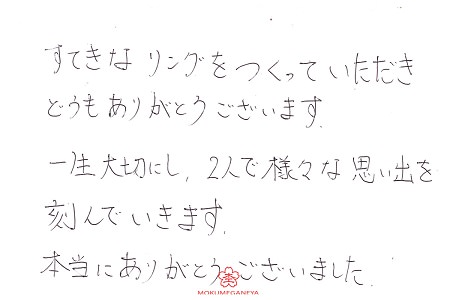 すてきな リングを つくって いただき
どうもありがとうございます.
一生大切にし, 2人で様々な思い出を
刻んでいきます.
本当にありがとうございました.
MOKUMEGANEYA